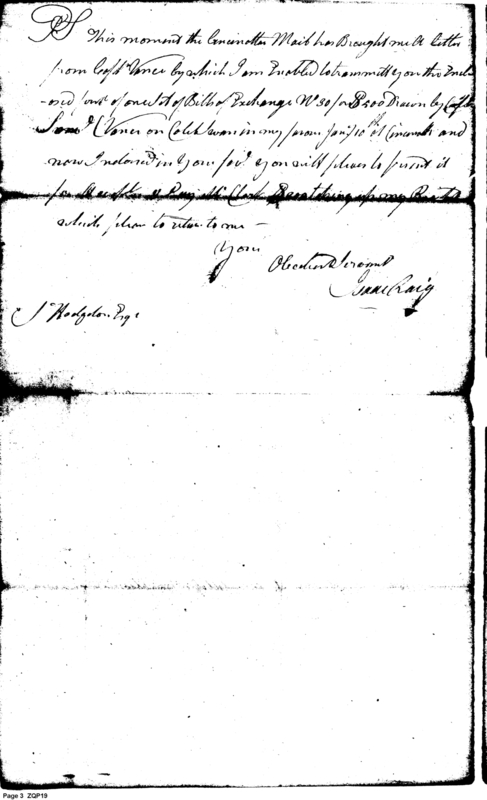 PS This moment the Cincinatti Mail has Brought me A letter
from Capt Vance by which I am Enabled to transmitt you the Encl
-osed first of one Set of Bills of Exchange No 30 for $500 Drawn by Capt
Saml C Vance on Caleb Swan in my favor Jany 10th at Cincinati and
now Indorsed in Your favr you will please to present it
for and my
which please to return to me —
Your
Obedient Servant
Isaac Craig
S Hodgdon Esqr
Page 3 ZQP19